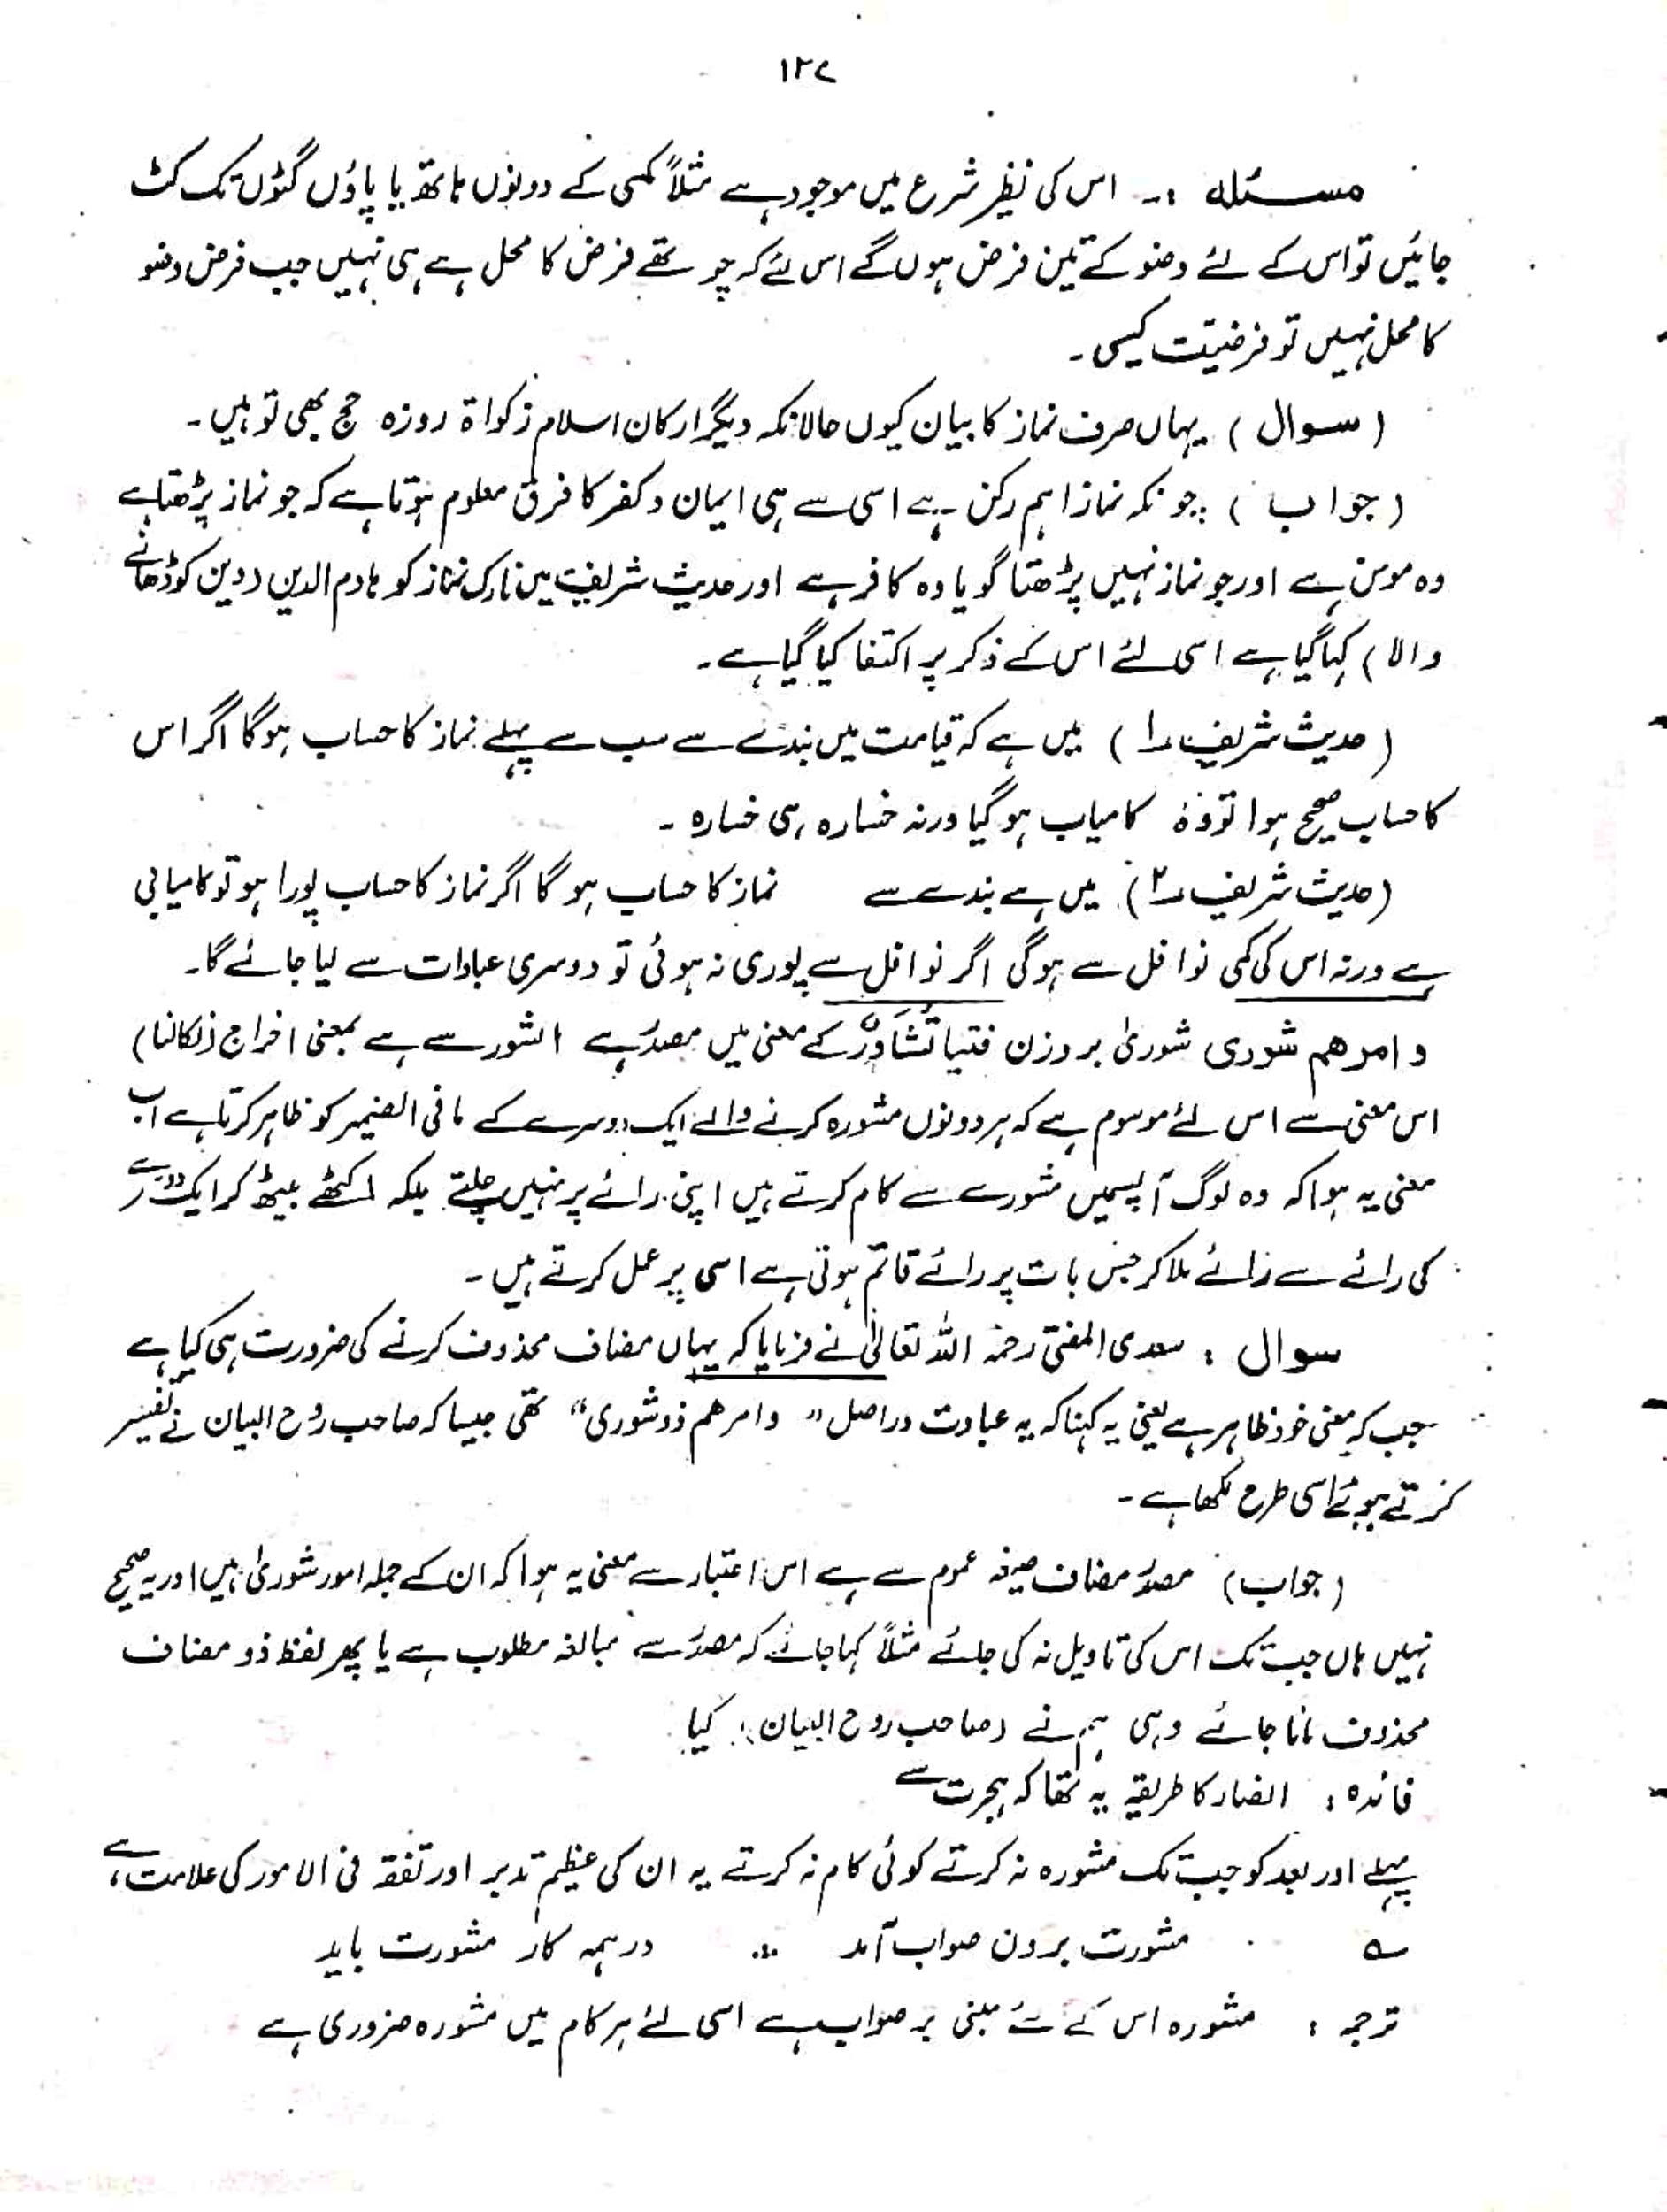 ۱۲۷
مسئلہ :۔ اس کی نظیر شرع میں موجود ہے مثلاً کسی کے دونوں ہاتھ یا پاؤں گٹوں تک کٹ
جائیں تو اس کے لئے وضو کے تین فرض ہوں گے اس لئے کہ چوتھے فرض کا محل ہے ہی نہیں جب فرض وضو
کا محل نہیں تو فرضیت کیسی ۔
( سوال ) یہاں صرف نماز کا بیان کیوں حالانکہ دیگر ارکان اسلام زکواۃ روزہ حج بھی تو ہیں ۔
( جواب ) چونکہ نماز اہم رکن ہے اسی سے ہی ایمان و کفر کا فرق معلوم ہوتا ہے کہ جو نماز پڑھتا ہے
وہ مومن ہے اور جو نماز نہیں پڑھتا گویا وہ کافر ہے اور حدیث شریف میں تارک نماز کو ہادم الدین (دین کو ڈھانے
والا ) کہا گیا ہے اسی لئے اس کے ذکر پر اکتفا کیا گیا ہے ۔
( حدیث شریف ۱ ) میں ہے کہ قیامت میں بندے سے سب سے پہلے نماز کا حساب ہو گا اگر اس
کا حساب صحیح ہوا تو وہ کامیاب ہو گیا ورنہ خسارہ ہی خسارہ ۔
( حدیث شریف ۲ ) میں ہے بندے سے نماز کا حساب ہو گا اگر نماز کا حساب پورا ہو تو کامیابی
ہے ورنہ اس کی کمی نوافل سے ہوگی اگر نوافل سے پوری نہ ہوئی تو دوسری عبادات سے لیا جائے گا۔
وامرھم شوری شوریٰ بروزن فتیا تَشَاوُرْ کے معنی میں مصدر ہے الشور سے ہے بمعنی اخراج (نکالنا)
اس معنی سے اس لئے موسوم ہے کہ ہر دونوں مشورہ کرنے والے ایک دوسرے کے مافی الضیمر کو ظاہر کرتا ہے اب
معنی یہ ہوا کہ وہ لوگ آپسمیں مشورے سے کام کرتے ہیں اپنی رائے پر نہیں چلتے بلکہ اکٹھے بیٹھ کر ایک دوسرے
کی رائے سے رائے ملا کر جس بات پر رائے قائم ہوتی ہے اسی پر عمل کرتے ہیں ۔
سوال : سعدی المفتی رحمۃ اللہ تعالیٰ نے فرمایا کہ یہاں مضاف محذوف کرنے کی ضرورت ہی کیا ہے
جب کہ معنی خود ظاہر ہے یعنی یہ کہنا کہ یہ عبادت دراصل " وامرھم ذو شوری " تھی جیسا کہ صاحب روح البیان نے تفسیر
کرتے ہوئے اسی طرح لکھا ہے ۔
( جواب ) مصدر مضاف صیغہ عموم سے ہے اس اعتبار سے معنی یہ ہوا کہ ان کے جملہ امور شوریٰ ہیں اور یہ صحیح
نہیں ہاں جب تک اس کی تاویل نہ کی جائے مثلاً کہا جائے کہ مصدر سے مبالغہ مطلوب ہے یا پھر لفظ ذو مضاف
محذوف مانا جائے وہی ہم نے (صاحب روح البیان) کیا
فائدہ : انصار کا طریقہ یہ تھا کہ ہجرت سے
پہلے اور بعد کو جب تک مشورہ نہ کرتے کوئی کام نہ کرتے یہ ان کی عظیم تدبر اور تفقہ فی الامور کی علامت ہے
؎ مشورت بردن صواب آمد ؞ در ہمہ کار مشورت باید
ترجمہ : مشورہ اس کے لئے مبنی بر صواب ہے اسی لئے ہر کام میں مشورہ ضروری ہے